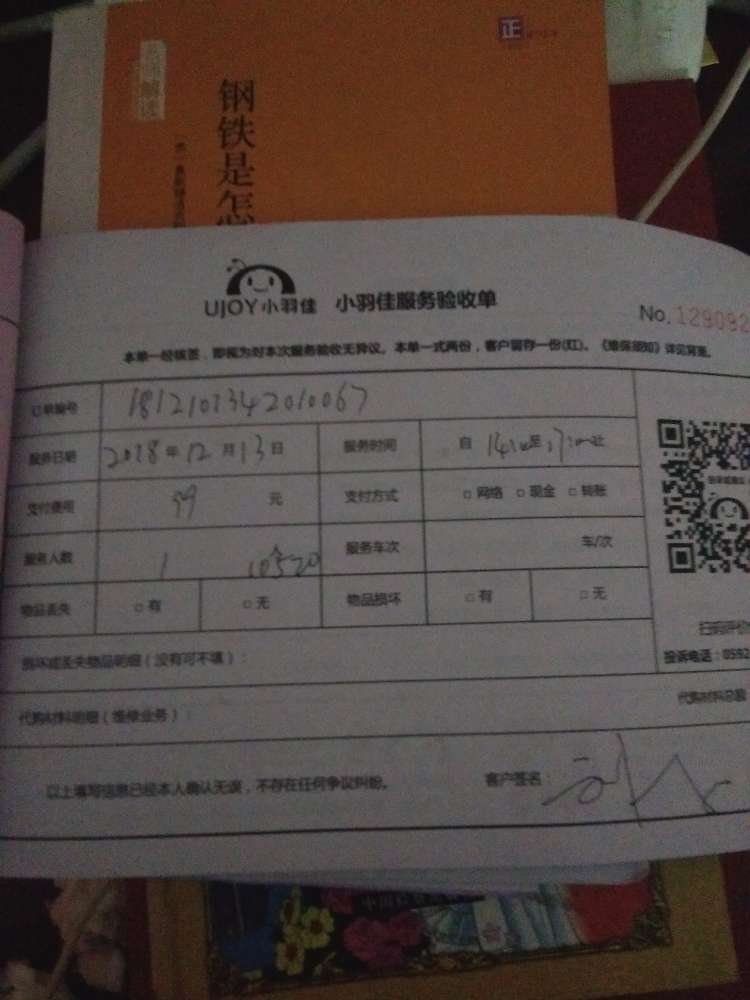 正
解读
钢铁是怎
UJOY小羽佳 小羽佳服务验收单
No.129092
本单一经核签,即视为对本次服务验收无异议。本单一式两份,客户留存一份(红)。《维保须知》详见背面。
订单编号 1812101342010067
服务日期 2018年12月13日 服务时间 自 至 止
支付费用 99 元 支付方式 □网络 □现金 □转账
服务人数 1 10520 服务车次 车/次
物品丢失 □有 □无 物品损坏 □有 □无
扫码评价
投诉电话:0592
损坏或丢失物品明细(没有可不填):
代购材料明细(维修业务): 代购材料总额
以上填写信息已经本人确认无误,不存在任何争议纠纷。 客户签名: